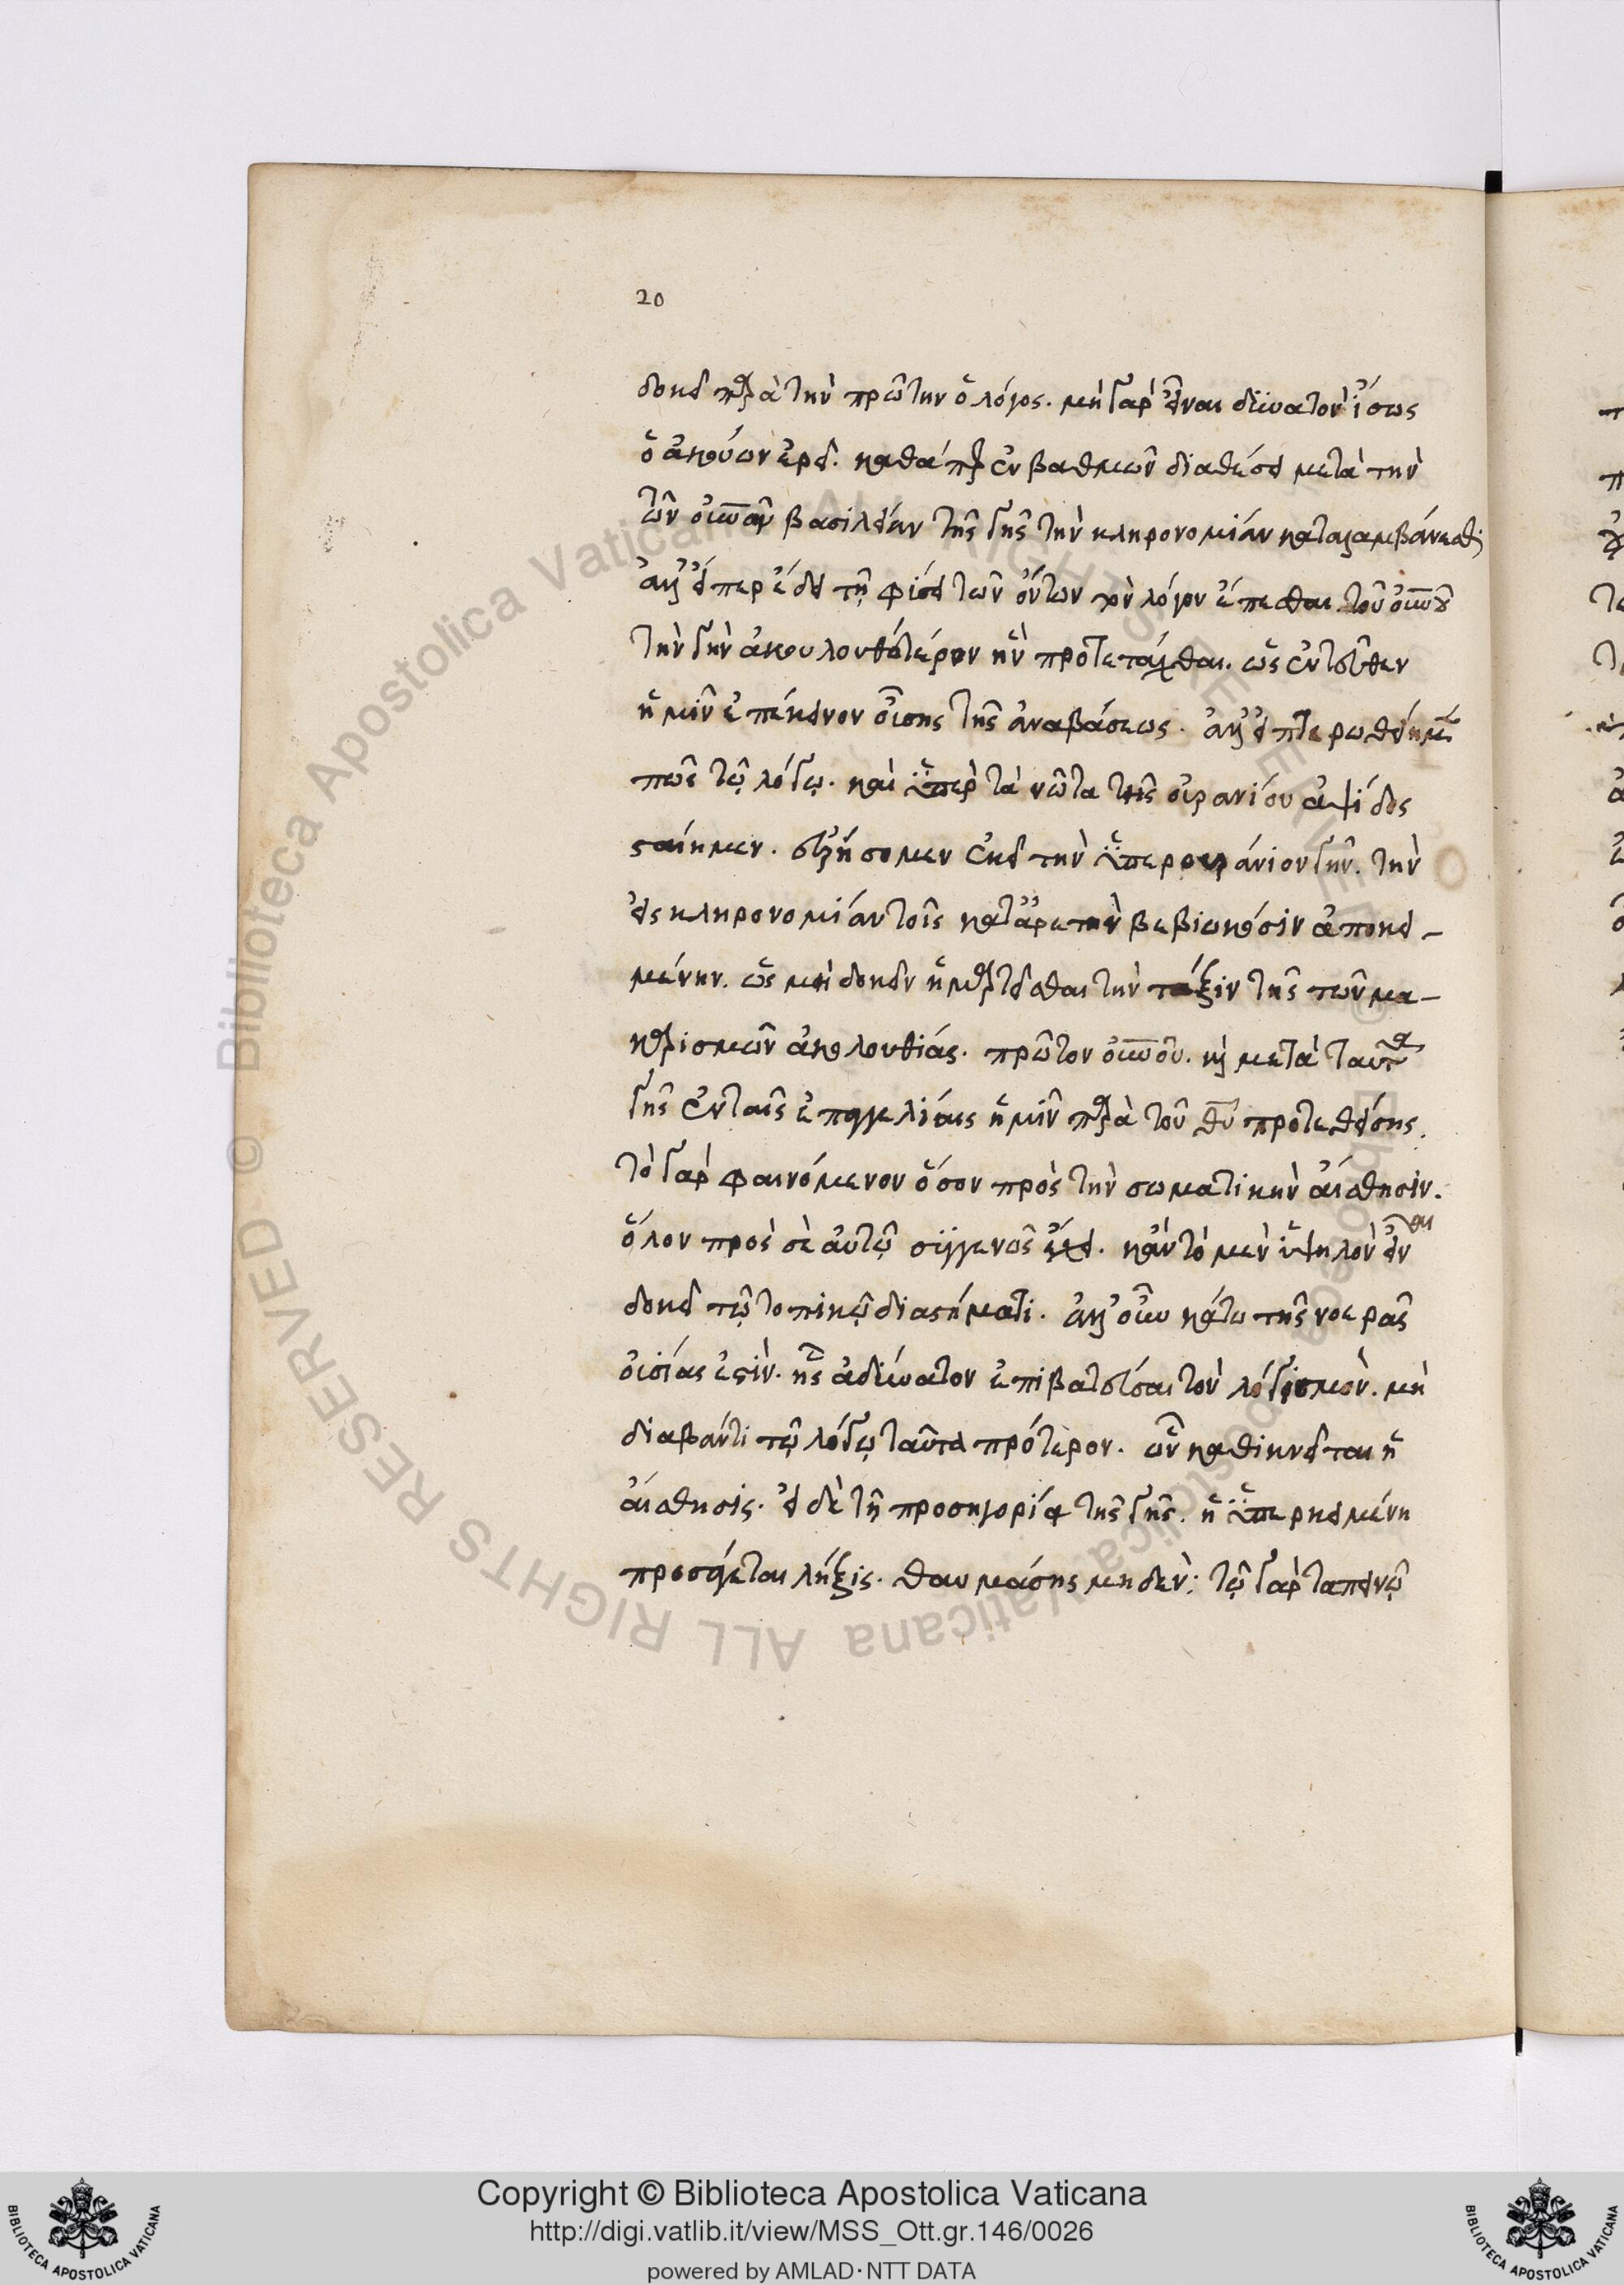 20
δοκεῖ παρὰ τὴν πρώτην ὁ λόγος. μὴ γὰρ εἶναι δυνατὸν ἴσως
ὁ ἀκούων ἐρεῖ. καθάπερ ἐν βαθμῶν διαθέσει μετὰ τὴν
τῶν οὐνῶν βασιλείαν τῆς γῆς τὴν κληρονομίαν καταλαμβάνεσθαι
ἀλλ' εἴπερ ἔδει τῇ φύσει τῶν ὄντων τὸν λόγον ἕπεσθαι. τοῦ οὐνοῦ
τὴν γῆν ἀκολουθότερον ἦν προτετάχθαι. ὡς ἐντεῦθεν
ἡμῖν ἐπέκεινον οὔσης τῆς ἀναβάσεως. ἀλλ' εἰ πτερωθείημεν
πως τῷ λόγῳ. καὶ ὑπὲρ τὰ νῶτα τῆς οὐρανίου ἁψίδος
σταίημεν. εὑρήσομεν ἐκεῖ τὴν ὑπερουράνιον γῆν. τὴν
εἰς κληρονομίαν τοῖς κατ' ἀρετὴν βεβιωκόσιν ἀποκει-
μένην. ὡς μὴ δοκεῖν ἡμαρτεῖσθαι τὴν τάξιν τῆς τῶν μα-
καρισμῶν ἀκολουθίας. πρῶτον οὐνοῦ. καὶ μετὰ ταῦτα
γῆς ἐν ταῖς ἐπαγγελίαις ἡμῖν παρὰ τοῦ θῦ προτεθείσης.
τὸ γὰρ φαινόμενον ὅσον πρὸς τὴν σωματικὴν αἴσθησιν.
ὅλον πρὸς σὲ αὐτῷ συγγενῶς ἔχει. κἂν τὸ μὲν ὑψηλὸν εἶναι
δοκεῖ τῷ τοπικῷ διαστήματι. ἀλλ' οὖν κάτω τῆς νοερᾶς
οὐσίας ἐστίν. ἧς ἀδύνατον ἐπιβατεῦσαι τὸν λογισμὸν. μὴ
διαβάντι τῷ λόγῳ ταῦτα πρότερον. ὧν καθικνεῖται ἡ
αἴσθησις. εἰ δὲ τῇ προσηγορίᾳ τῆς γῆς. ἡ ὑπερκειμένη
προσάγεται λῆξις. θαυμάσης μηδὲν; τῷ γὰρ ταπεινῷ
Copyright © Biblioteca Apostolica Vaticana
http://digi.vatlib.it/view/MSS_Ott.gr.146/0026
powered by AMLAD·NTT DATA